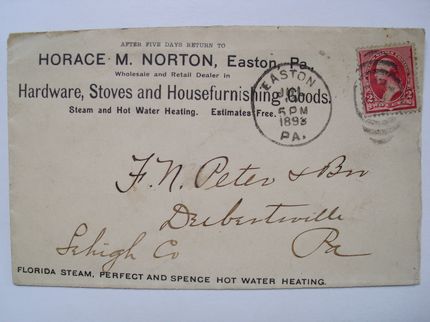 AFTER FIVE DAYS RETURN TO
HORACE M. NORTON, Easton, Pa.,
Wholesale and Retail Dealer in
Hardware, Stoves and Housefurnishing Goods.
Steam and Hot Water Heating. Estimates Free.
EASTON
5 PM
1893
PA.
2 2
F. N. Peter & Bro
Deibertsville
Lehigh Co
Pa
FLORIDA STEAM, PERFECT AND SPENCE HOT WATER HEATING.